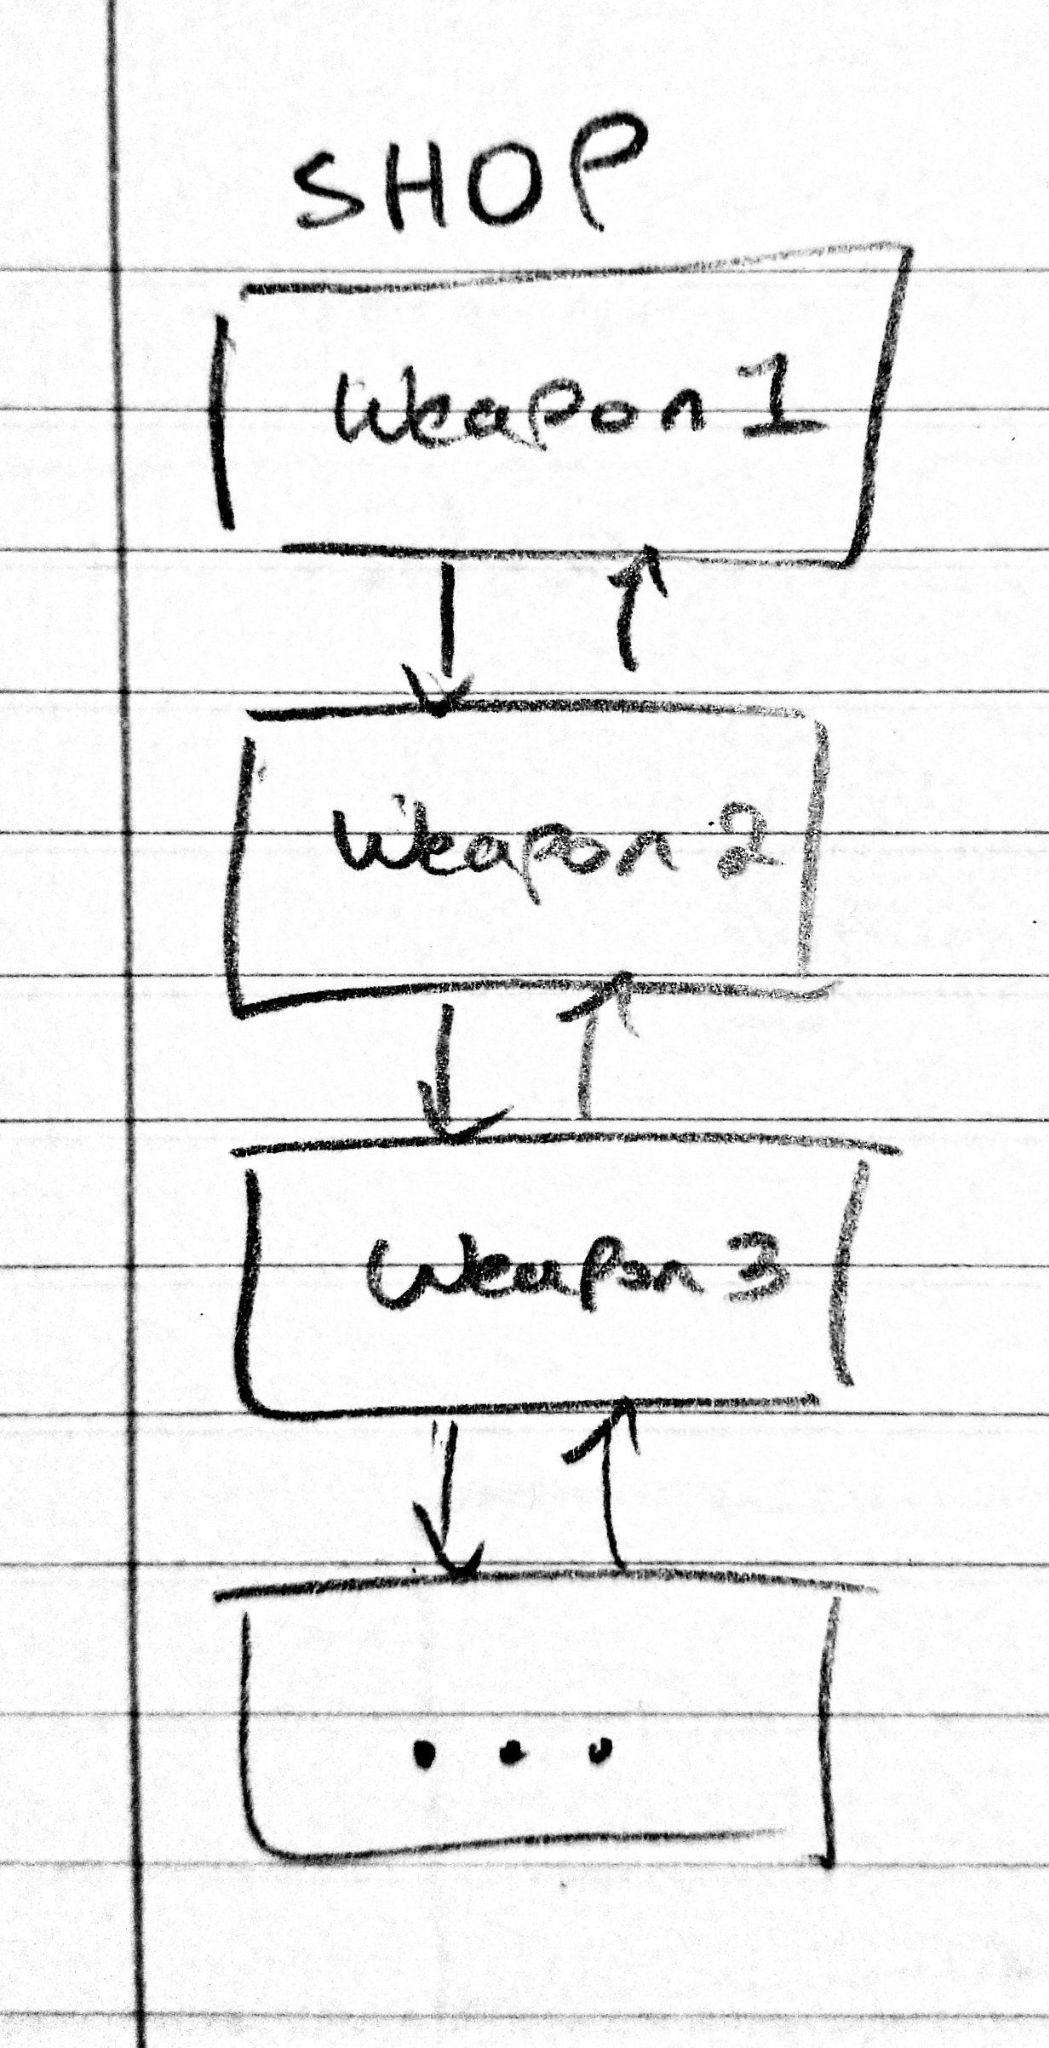 SHOP
Weapon 1
Weapon 2
Weapon 3
...